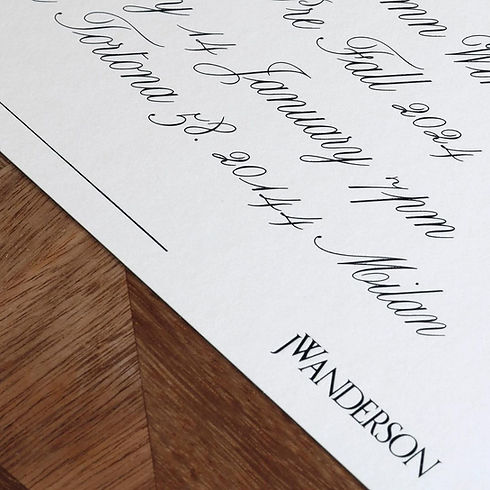 Pre Fall 2024
14 January 7pm
Tortona 58. 20144 Milan
JWANDERSON